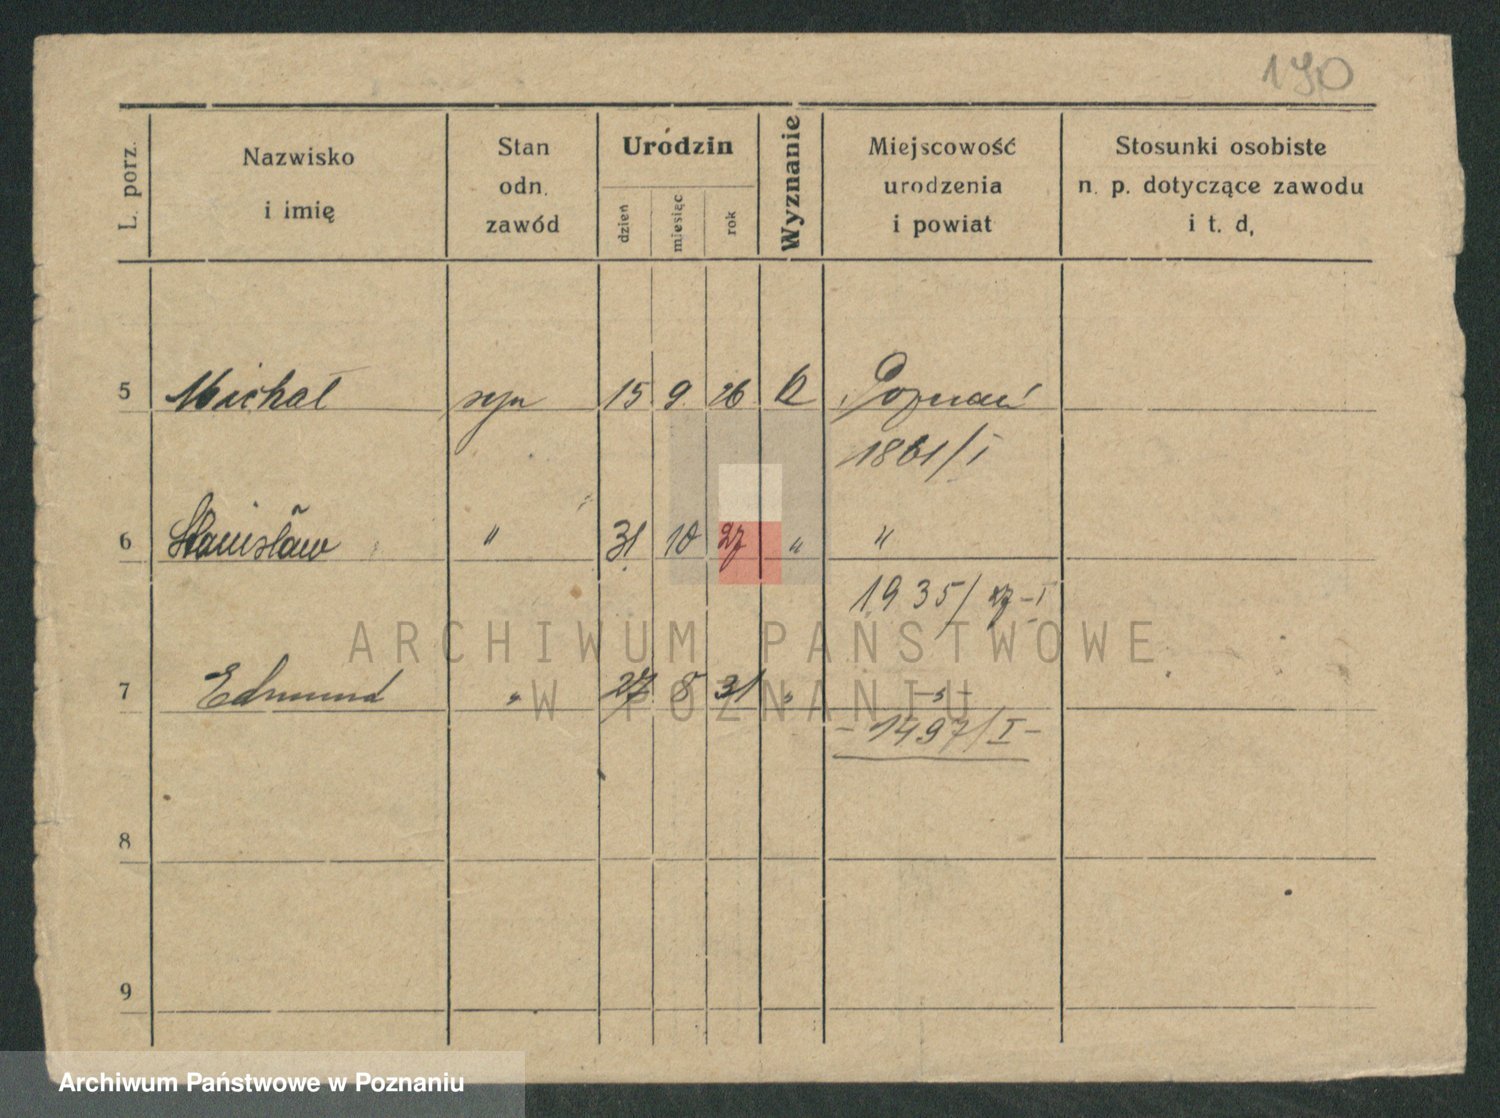 190
L. porz.
Nazwisko
i imię
Stan
odn.
zawód
Urodzin
dzień
miesiąc
rok
Wyznanie
Miejscowość
urodzenia
i powiat
Stosunki osobiste
n. p. dotyczące zawodu
i t. d,
5 Michał syn 15 9 26 Poznań
1861/I
6 Stanisław " 31 10 27 " "
1935/27-I
7 Edmund " 27 8 31 " -"-
-1497/I-
8
9
ARCHIWUM PAŃSTWOWE
W POZNANIU
Archiwum Państwowe w Poznaniu